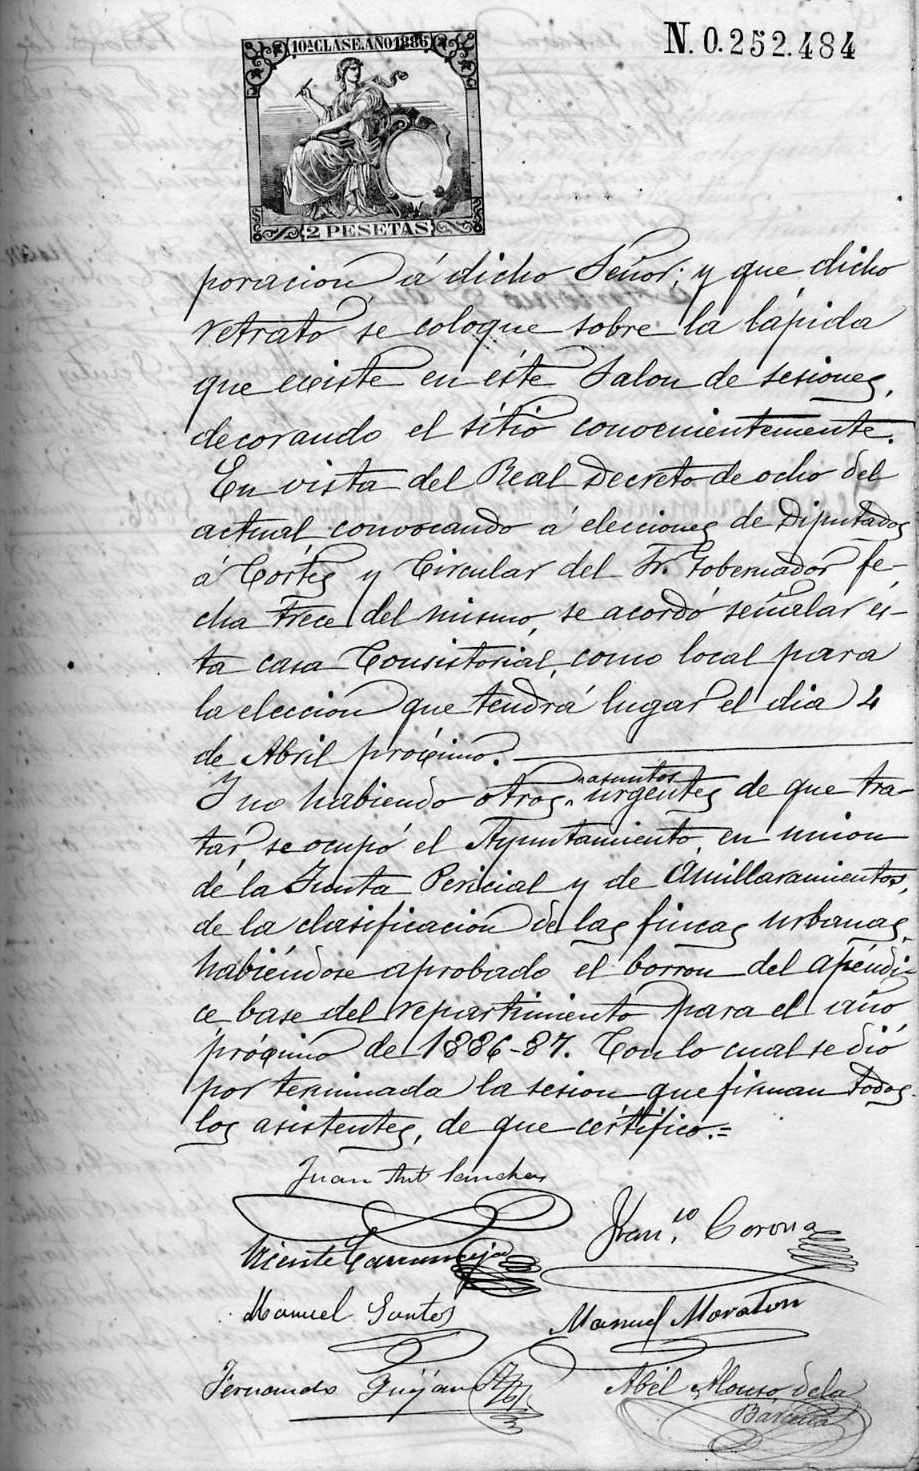 10ª CLASE. AÑO 1886
N. 0.252.484
2 PESETAS
poracion á dicho Señor; y que dicho
retrato se coloque sobre la lápida
que existe en éste Salon de sesiones,
decorando el sitio convenientemente.
En vista del Real Decreto de ocho del
actual, convocando á elecciones de Diputados
á Cortes y Circular del Sr. Gobernador fe-
cha trece del mismo, se acordó señalar és-
ta casa Consistorial, como local para
la eleccion que tendrá lugar el dia 4
de Abril próximo.
Y no habiendo otros asuntos urgentes de que tra-
tar, se ocupó el Ayuntamiento, en union
de la Junta Pericial y de Amillaramientos,
de la clasificacion de las fincas urbanas,
habiéndose aprobado el borron del apéndi-
ce base del repartimiento para el año
próximo de 1886-87. Con lo cual se dió
por terminada la sesion que firman todos
los asistentes, de que certifico.=
Juan Ant Sanchez
Franco. Corona
Vicente
Manuel Santos
Manuel Moraton
Fernando
Abél Alonso de la
Bárcena